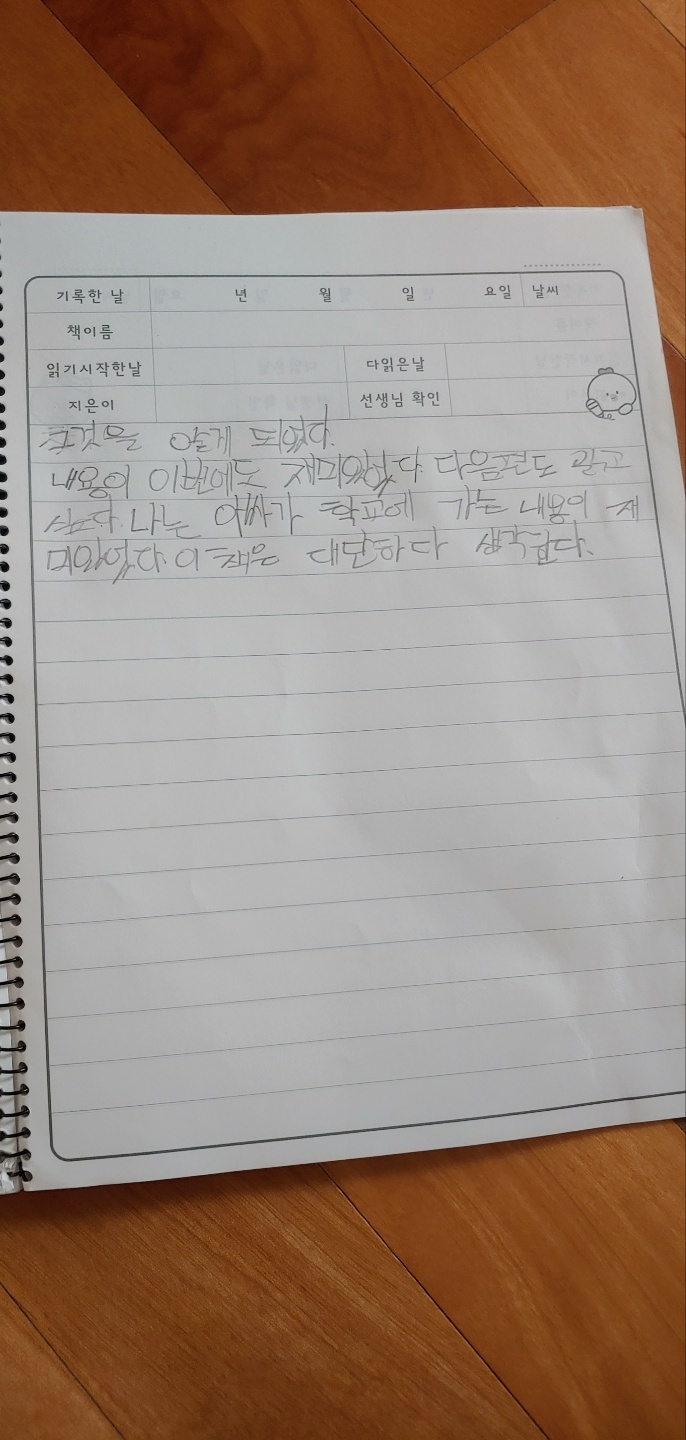 기록한 날 년 월 일 요일 날씨
책이름
읽기시작한날 다읽은날
지은이 선생님 확인
그것을 알게 되었다.
내용이 이번에도 재미있었다. 다음편도 읽고
싶다. 나는 아빠가 학교에 가는 내용이 재
미있었다. 이 책은 대단하다 생각한다.